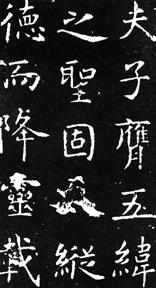 夫子膺五緯
之聖固天縱
德而降靈載